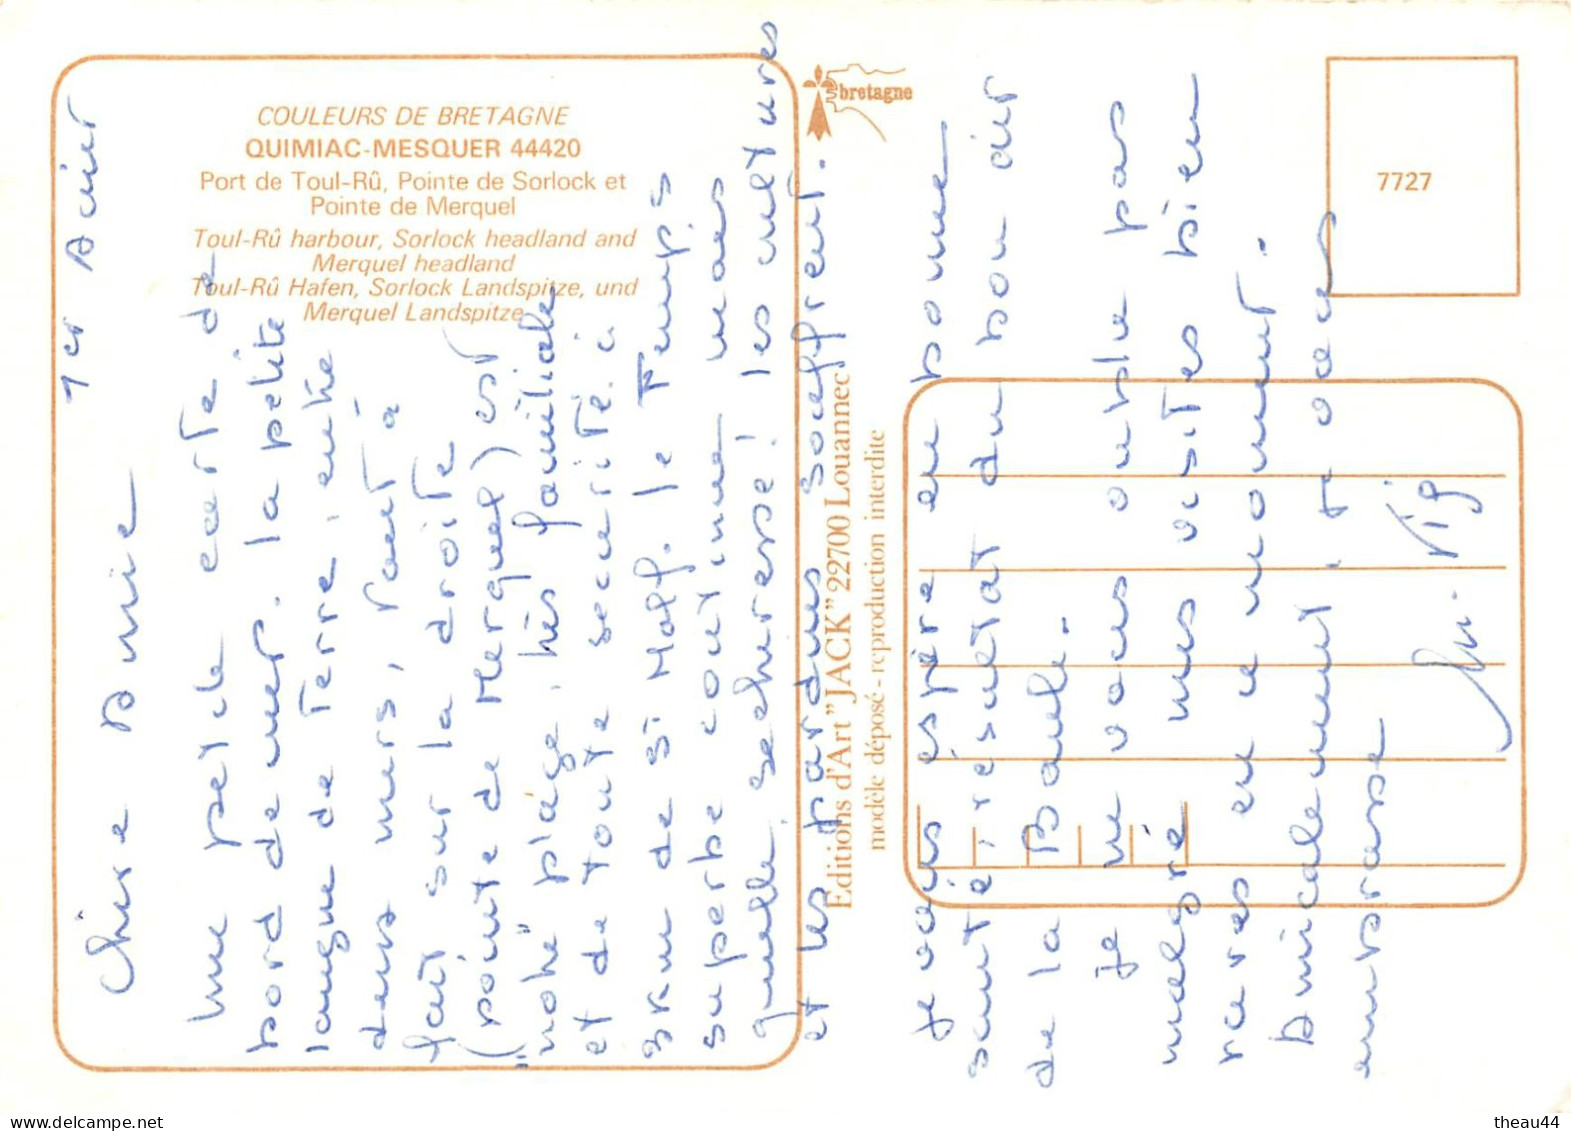 COULEURS DE BRETAGNE
QUIMIAC-MESQUER 44420
Port de Toul-Rû, Pointe de Sorlock et
Pointe de Merquel
Toul-Rû harbour, Sorlock headland and
Merquel headland
Toul-Rû Hafen, Sorlock Landspitze, und
Merquel Landspitze
bretagne
7727
Editions d'Art "JACK" 22700 Louannec
modèle déposé - reproduction interdite
1er Août
Chère Amie
une petite carte de
bord de mer. la petite
langue de Terre, entre
deux mers, tout à
fait sur la droite
(pointe de Merquel) est
"notre" plage, très familiale
et de toute sécurité. à
5 km de St Molf. le Temps
superbe continue mais
quelle sècheresse! les cultures
et les jardins souffrent.
Je vous espère en bonne
santé, résultat du bon air
de la Baule.
Je ne vous oublie pas
malgré mes visites bien
rares en ce moment.
Amicalement, je vous
embrasse
theau44